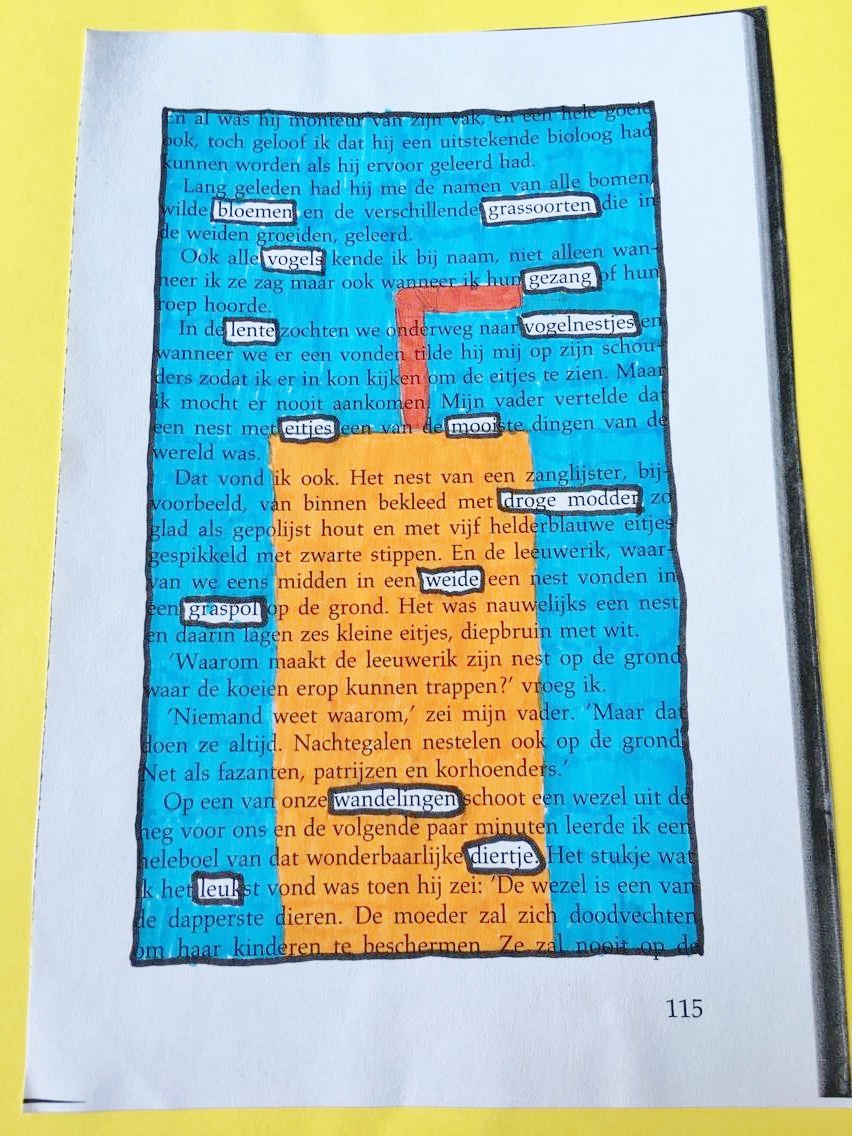 En al was hij monteur van zijn vak, en een hele goeie
ook, toch geloof ik dat hij een uitstekende bioloog had
kunnen worden als hij ervoor geleerd had.
Lang geleden had hij me de namen van alle bomen,
wilde bloemen en de verschillende grassoorten die in
de weiden groeiden, geleerd.
Ook alle vogels kende ik bij naam, niet alleen wan-
neer ik ze zag maar ook wanneer ik hun gezang of hun
roep hoorde.
In de lente zochten we onderweg naar vogelnestjes en
wanneer we er een vonden tilde hij mij op zijn schou-
ders zodat ik er in kon kijken om de eitjes te zien. Maar
ik mocht er nooit aankomen. Mijn vader vertelde dat
een nest met eitjes een van de mooiste dingen van de
wereld was.
Dat vond ik ook. Het nest van een zanglijster, bij-
voorbeeld, van binnen bekleed met droge modder, zo
glad als gepolijst hout en met vijf helderblauwe eitjes
gespikkeld met zwarte stippen. En de leeuwerik, waar-
van we eens midden in een weide een nest vonden in
een graspol op de grond. Het was nauwelijks een nest
en daarin lagen zes kleine eitjes, diepbruin met wit.
'Waarom maakt de leeuwerik zijn nest op de grond
waar de koeien erop kunnen trappen?' vroeg ik.
'Niemand weet waarom,' zei mijn vader. 'Maar dat
doen ze altijd. Nachtegalen nestelen ook op de grond.
Net als fazanten, patrijzen en korhoenders.'
Op een van onze wandelingen schoot een wezel uit de
heg voor ons en de volgende paar minuten leerde ik een
heleboel van dat wonderbaarlijke diertje. Het stukje wat
ik het leukst vond was toen hij zei: 'De wezel is een van
de dapperste dieren. De moeder zal zich doodvechten
om haar kinderen te beschermen. Ze zal nooit op de
115